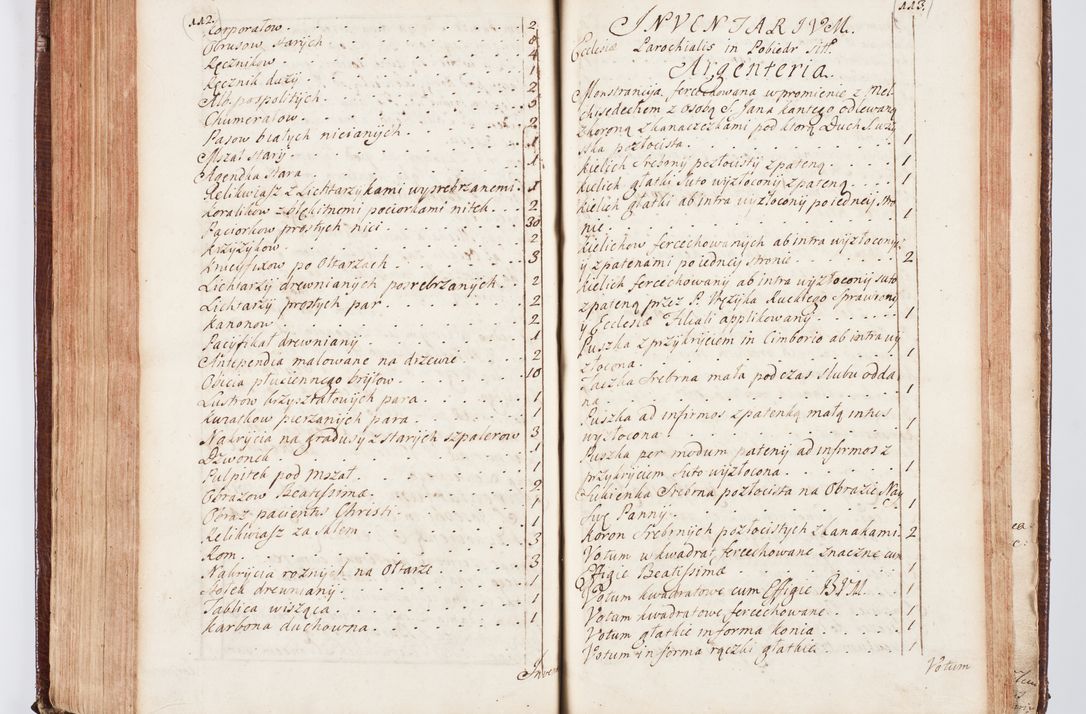 112.
Korporałow. 2
Obrusow starych. 8
Ręcznikow. 4
Ręcznik duzy. 1
Alb pospolitych. 2
Humerałow. 3
Pasow białych nicianych. 2
Mszał stary. 1
Agendka stara. 1
Relikwiasz z Lichtarzykami wysrebrzanemi. 1
Koralikow z błękitnemi paciorkami nitek. 2
Paciorkow prostych nici 30
Krzyżykow. 2
Krucyfixow po Ołtarzach. 3
Lichtarzy drewnianych posrebrzanych. 2
Lichtarzy prostych par. 2
Kanonow. 2
Pacyfikał drewniany. 1
Antipendia malowane na drzewie. 2
Obicia płuciennego brytow. 10
Lustrow krzyształowych para. 1
Kwiatkow pierzanych para. 1
Nakrycia na gradusy z starych szpalerow 3
Dzwonek. 1
Pulpitek pod Mszał. 1
Obrazow Beatissimæ. 2
Obraz pacientis Christi. 1
Relikwiasz za szkłem. 1
Kom. 3
Nakrycia roznych na Ołtarze. 3
Stołek drewniany. 1
Tablica wisząca. 1
Karbona duchowna. 1
Inven
113.
INVENTARIVM.
Ecclesiæ Parochialis in Pobiedr sitt.
Argenteria.
Monstrancyja fercechowana w promienie z Mel-
chysedechem z osobą S. Jana Kantego odlewaną
z koroną z kanaczczkami pod ktorą Duch S. wszy-
stka pozłocista. 1
Kielich srebrny pozłocisty z pateną. 1
Kielich głatki suto wyzłocony z pateną. 1
Kielich głatki ab intra wyzłocony po iedney stro
nie. 1
Kielichow fercechowanych ab intra wyzłocony
y z patenami po iedney stronie. 2
Kielich fercechowany ab intra wyzłocony suto
z pateną przez P. Wężyka Ruckiego sprawiony
y Ecclesiæ Filiali applikowany. 1
Puszka z przykryciem in Cimborio ab intra wy
złocona. 1
Taczka srebrna mała podczas slubu odda
na. 1
Puszka ad infirmos z patenką małą intus
wyzłocona. 1
Puszka per modum pateny ad infirmos z
przykryciem suto wyzłocona. 1
Sukienka srebrna pozłocista na Obrazie Nay
Swię Panny. 1
Koron srebrnych pozłocistych z kanakami. 2
Votum w kwadrat fercechowane znaczne cum
Effigie Beatissimæ. 1
Votum kwadratowe cum Effigie BVM. 1
Votum kwadratowe fercechowane. 1
Votum głatkie in forma konia. 1
Votum in forma rączki głatkie. 1
Votum